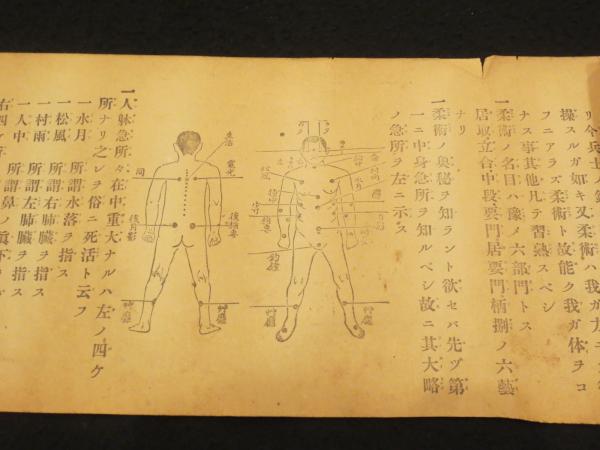 リ今兵士ノ
操スルガ如キ又柔術ハ我ガ力ニ
フニアラズ柔術ト故能ク我ガ体ヲコ
ナス事其他凡テ習熟スベシ
一柔術ノ名目ハ豫ノ六部門トス
居取立合中段要門居要門柄捌ノ六藝
ナリ
一柔術ノ奥秘ヲ知ラント欲セバ先ヅ第
一ニ中身急所ヲ知ルベシ故ニ其大略
ノ急所ヲ左ニ示ス
電光
後稲妻
後月影
艸靡
艸靡
水月
松風
村雨
稲妻
釣鐘
艸靡
艸靡
一人躰急所々在中重大ナルハ左ノ四ケ
所ナリ之レヲ俗ニ死活ト云フ
一水月　所謂水落ヲ指ス
一松風　所謂右肺臓ヲ指ス
一村雨　所謂左肺臓ヲ指ス
一人中　所謂鼻ノ眞下
右四ケ所